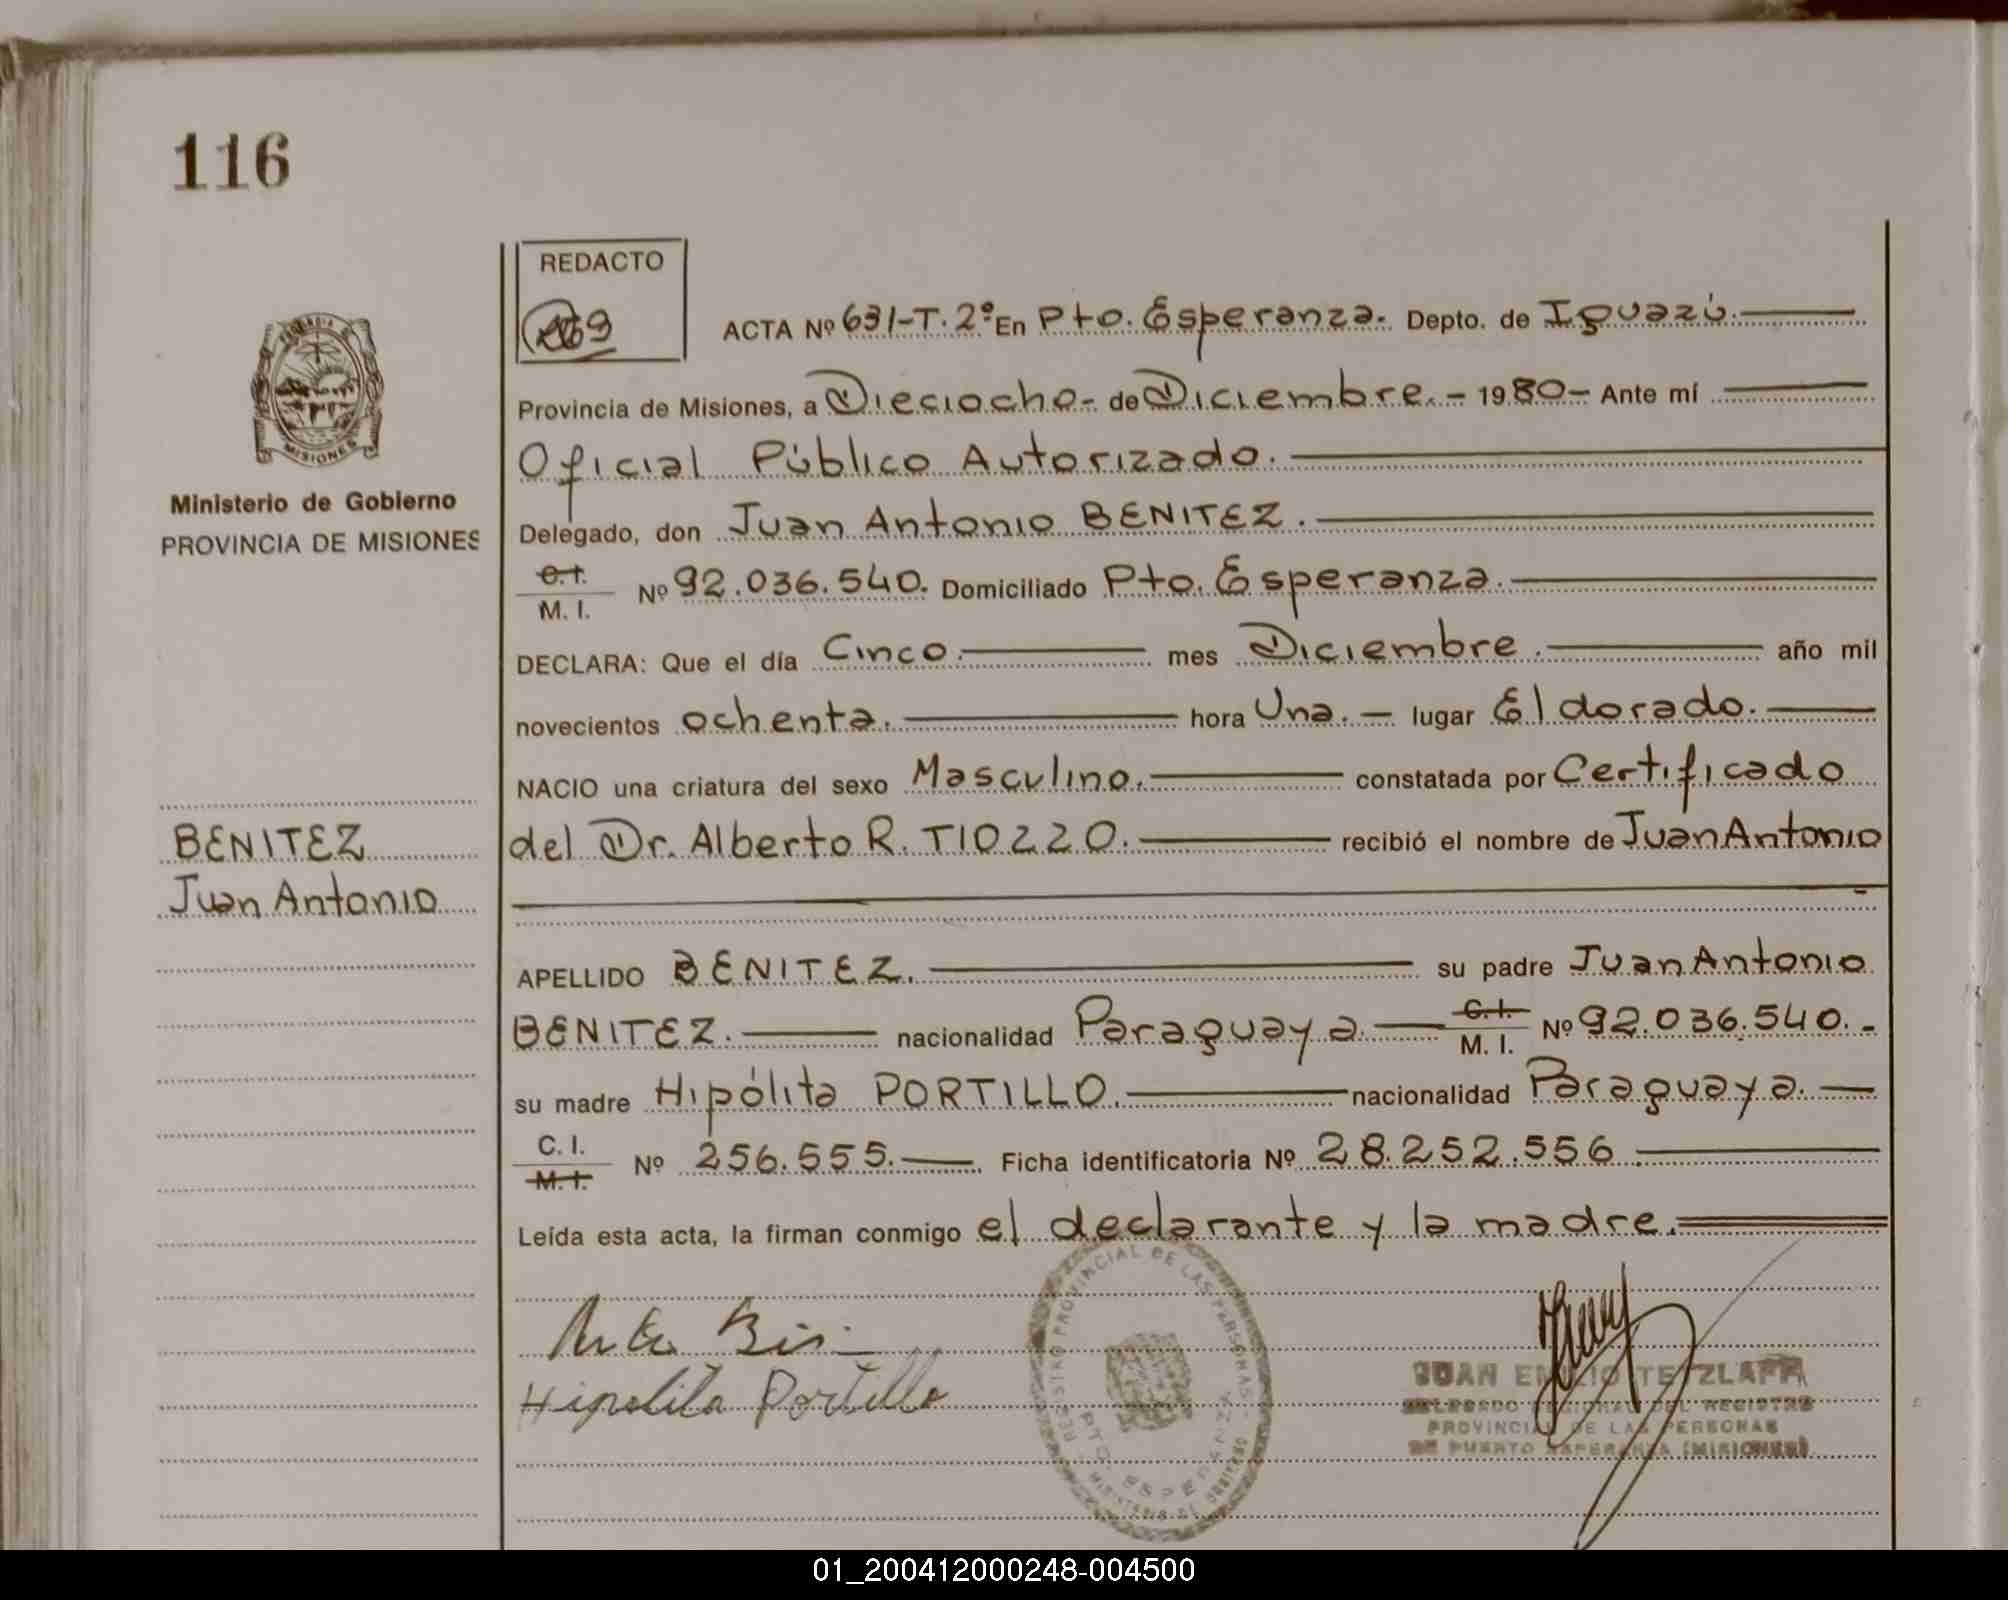 116
REDACTO
ACTA Nº 631-T.2º En Pto. Esperanza. Depto. de Iguazú.
Provincia de Misiones, a Dieciocho- de Diciembre.- 1980- Ante mí
Oficial Público Autorizado.
Delegado, don Juan Antonio BENITEZ.
C.I.
M. I. Nº 92.036.540. Domiciliado Pto. Esperanza.
DECLARA: Que el día Cinco. mes Diciembre. año mil
novecientos ochenta. hora Una. — lugar Eldorado.
NACIO una criatura del sexo Masculino. constatada por Certificado
del Dr. Alberto R. TIOZZO. recibió el nombre de Juan Antonio
APELLIDO BENITEZ. su padre Juan Antonio
BENITEZ. nacionalidad Paraguaya. C.I.
M. I. Nº 92.036.540.-
su madre Hipólita PORTILLO. nacionalidad Paraguaya.
C. I.
M. I. Nº 256.555. Ficha identificatoria Nº 28.252.556
Leída esta acta, la firman conmigo el declarante y la madre.
Hipolita Portillo
PROVINCIA DE
MISIONES
Ministerio de Gobierno
PROVINCIA DE MISIONES
BENITEZ
Juan Antonio
REGISTRO PROVINCIAL DE LAS PERSONAS
PTO. ESPERANZA
MINISTERIO DE GOBIERNO
JUAN EMILIO TETZLAFF
DELEGADO DEL REGISTRO
PROVINCIAL DE LAS PERSONAS
DE PUERTO ESPERANZA (MISIONES)
01_200412000248-004500